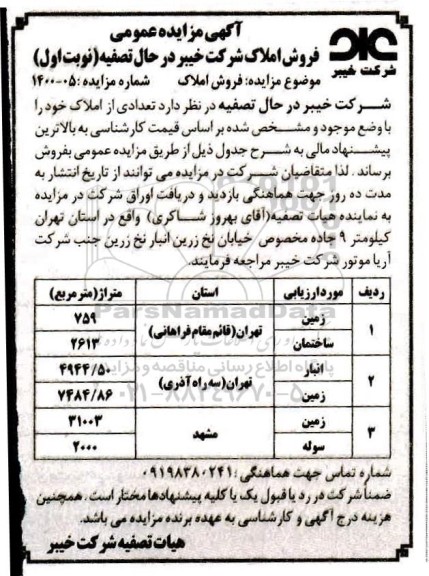 آگهی مزایده عمومی
فروش املاک شرکت خیبر در حال تصفیه (نوبت اول)
شرکت خیبر
موضوع مزایده: فروش املاک شماره مزایده: ۰۵-۱۴۰۰
شرکت خیبر در حال تصفیه در نظر دارد تعدادی از املاک خود را
با وضع موجود و مشخص شده بر اساس قیمت کارشناسی به بالاترین
پیشنهاد مالی به شرح جدول ذیل از طریق مزایده عمومی بفروش
برساند. لذا متقاضیان شرکت در مزایده می توانند از تاریخ انتشار به
مدت ده روز جهت هماهنگی بازدید و دریافت اوراق شرکت در مزایده
به نماینده هیات تصفیه (آقای بهروز شاکری) واقع در استان تهران
کیلومتر ۹ جاده مخصوص خیابان نخ زرین انبار نخ زرین جنب شرکت
آریا موتور شرکت خیبر مراجعه فرمایند.
ردیف مورد ارزیابی استان متراژ (متر مربع)
۱ زمین تهران (قائم مقام فراهانی) ۷۵۹
ساختمان ۲۶۱۳
۲ انبار تهران (سه راه آذری) ۴۹۴۴/۵۰
زمین ۷۴۸۴/۸۶
۳ زمین مشهد ۳۱۰۰۳
سوله ۲۰۰۰
ParsNamadData
پایگاه اطلاع رسانی مناقصه و مزایده
۰۲۱-۸۸۳۴۹۶۷۰-۵
شماره تماس جهت هماهنگی: ۰۹۱۹۸۳۸۰۲۴۱
ضمنا شرکت در رد یا قبول یک یا کلیه پیشنهادها مختار است. همچنین
هزینه درج آگهی و کارشناسی به عهده برنده مزایده می باشد.
هیات تصفیه شرکت خیبر